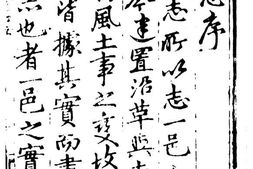 志序
志所以志一邑
建置沿革與
風土事之變故
皆據其實而書
也者一邑之實